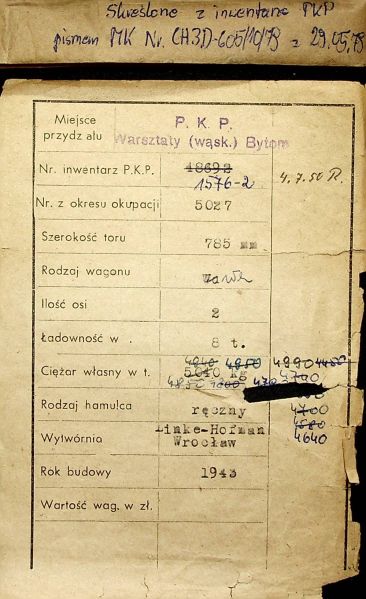 Skreślone z inwentarza PKP
pismem MK Nr. CH3D-605/10/73 z 29.05.73
Miejsce przydziału P. K. P.
Warsztaty (wąsk.) Bytom
Nr. inwentarz P.K.P. 18692
1576-2 4.7.50 R.
Nr. z okresu okupacji 5027
Szerokość toru 785 mm
Rodzaj wagonu
Ilość osi 2
Ładowność w . 8 t.
4840 4850 4990 4480
Ciężar własny w t. 5640 kg 4740
4850
Rodzaj hamulca ręczny 4700
Linke-Hofman 4640
Wytwórnia Wrocław
Rok budowy 1943
Wartość wag. w zł.